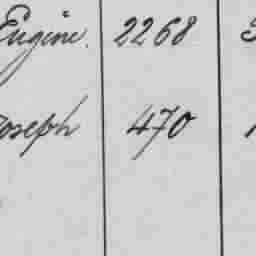 Eugine. 2268
Joseph 470